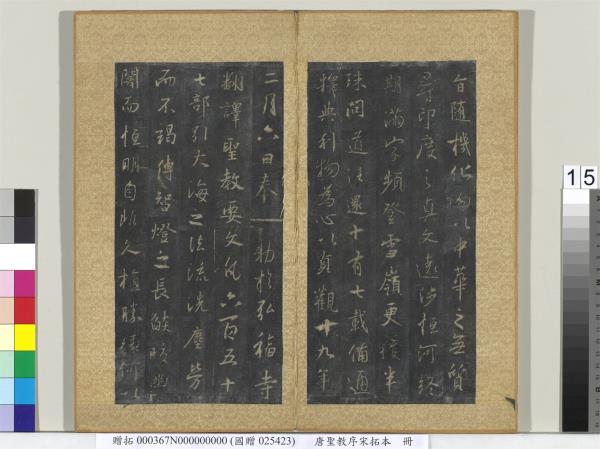 旨隨機化物以中華之無質
尋印度之真文遠涉恒河終
期滿字頻登雪嶺更獲半
珠問道往還十有七載備通
釋典利物為心以貞觀十九年
二月六日奉
勅於弘福寺
翻譯聖教要文凡六百五十
七部引大海之法流洗塵勞
而不竭傳智燈之長焰皎幽
闇而恒明自非久植勝緣何以
15
贈拓 000367N000000000 (國贈 025423) 唐聖教序宋拓本 冊